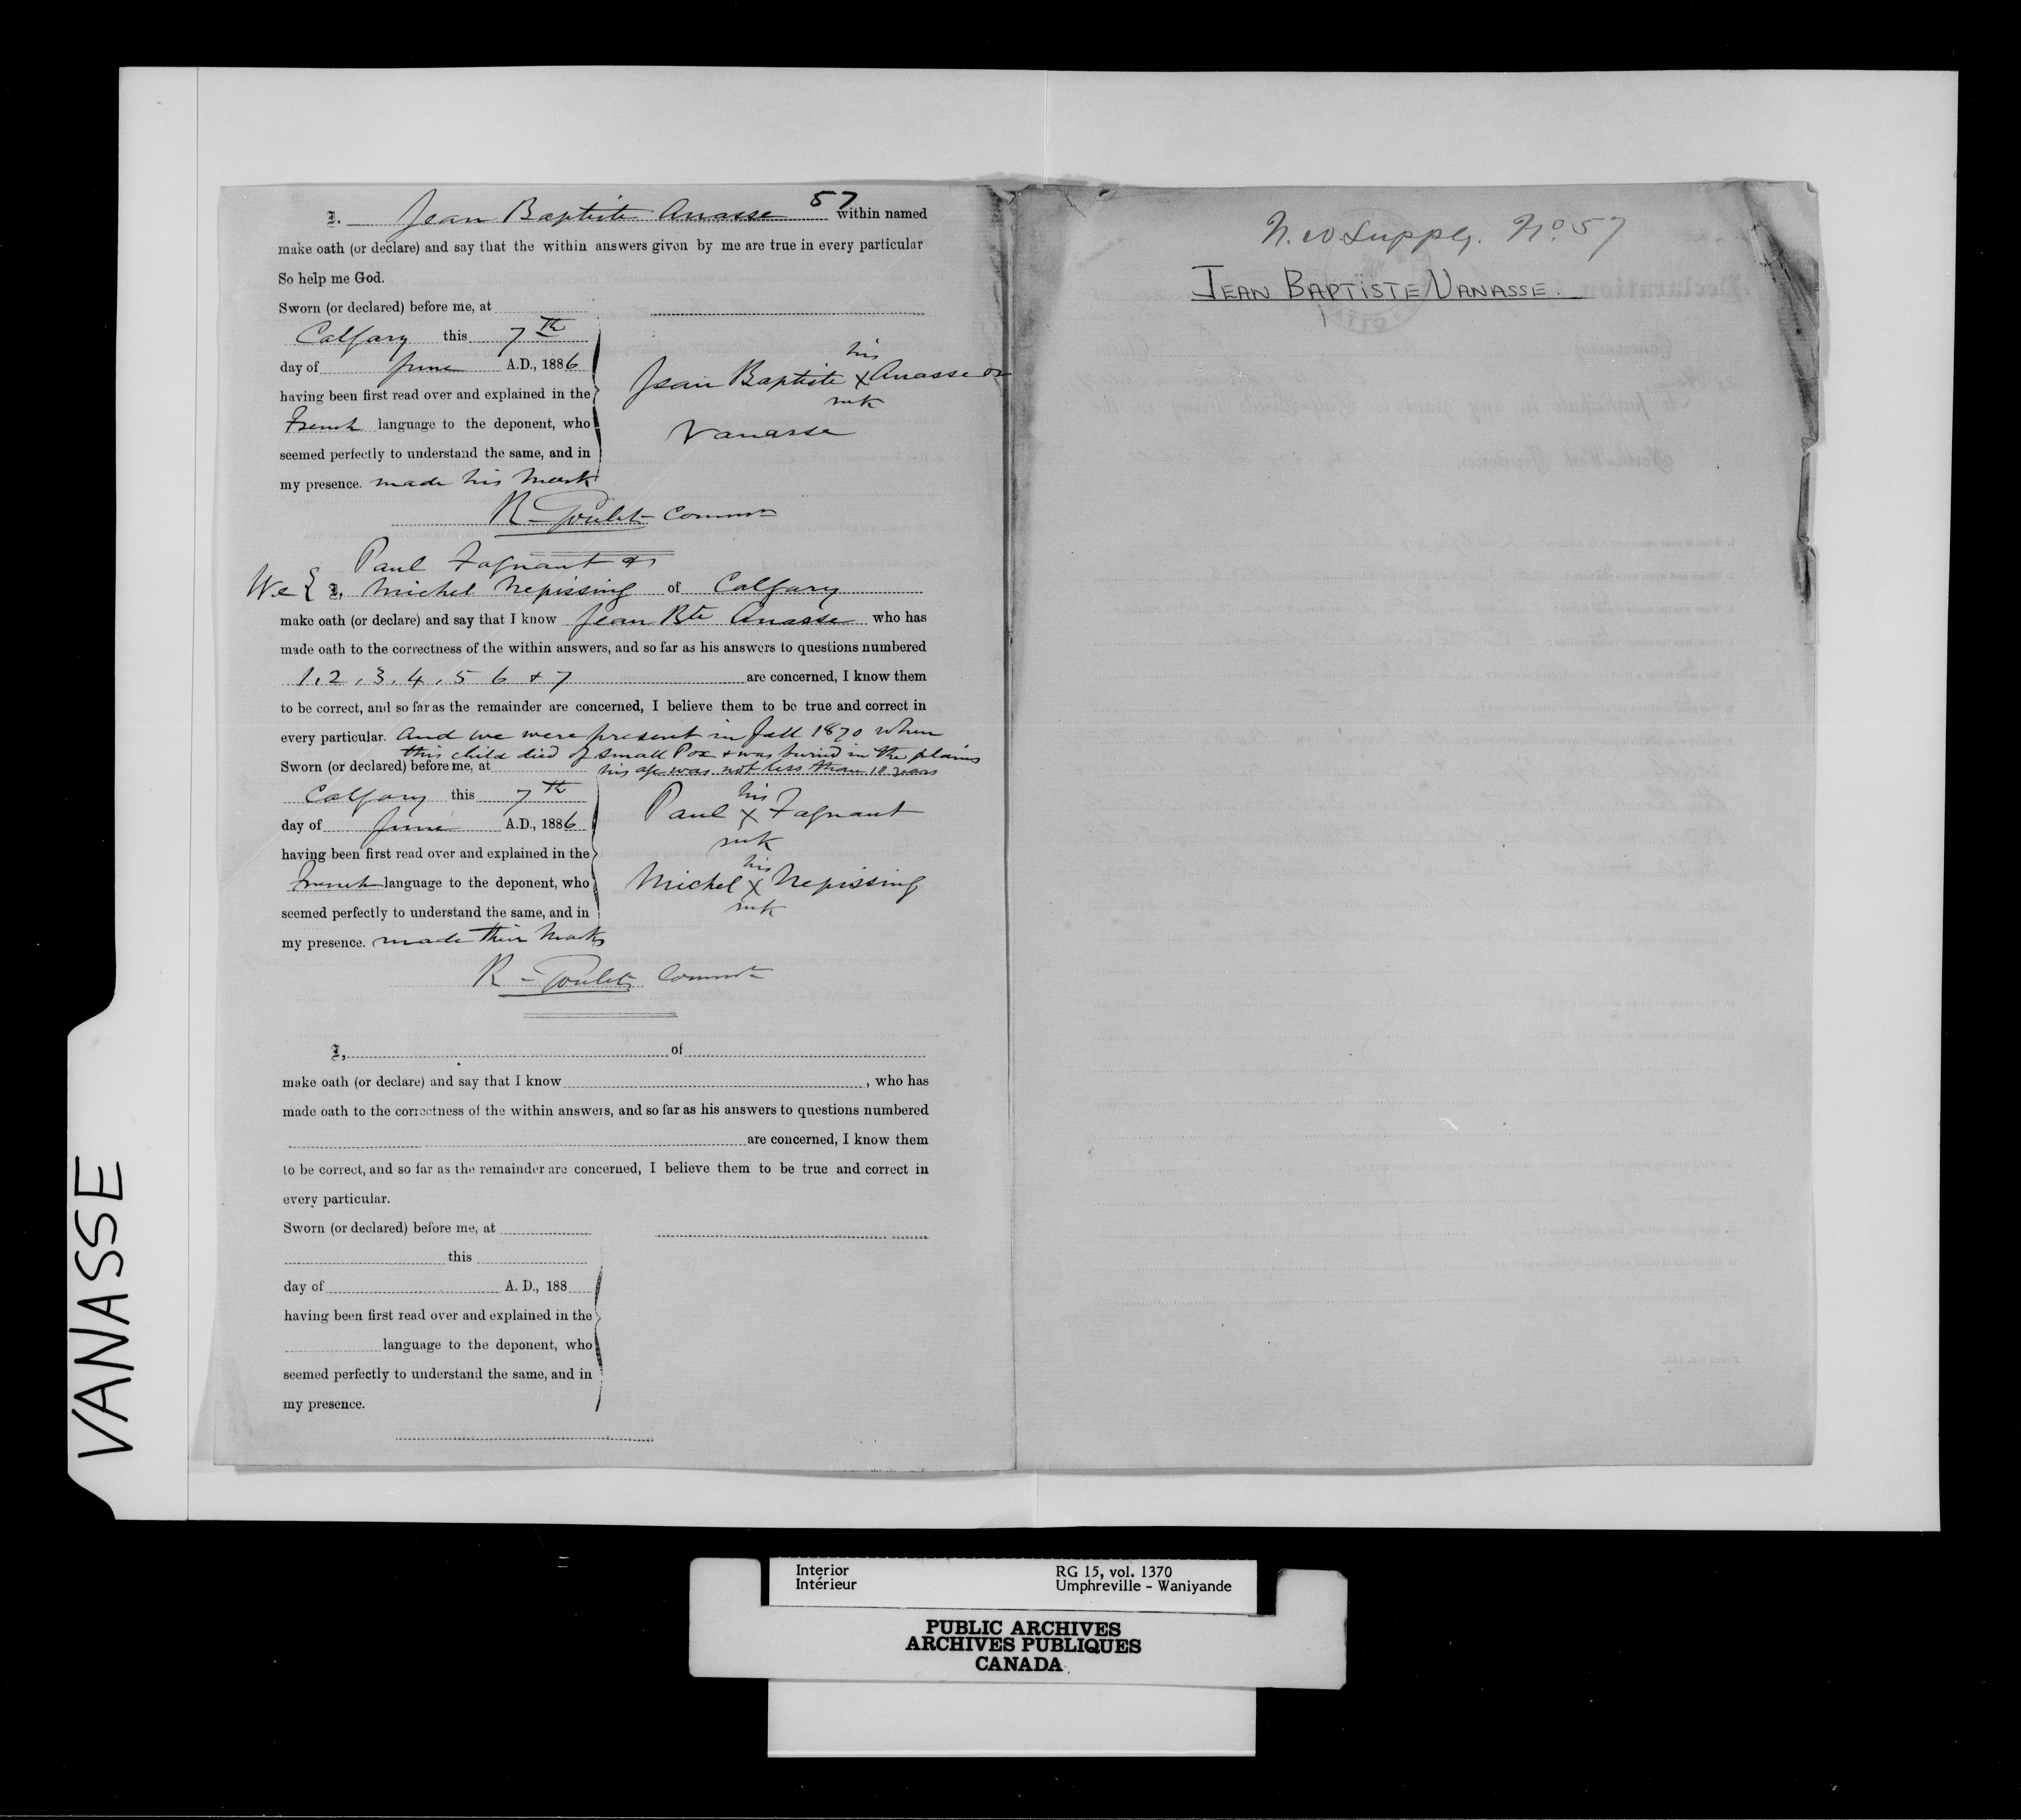 57
I, Jean Baptiste Anasse within named
make oath (or declare) and say that the within answers given by me are true in every particular
So help me God.
Sworn (or declared) before me, at
Calgary this 7th
day of June A.D., 1886
having been first read over and explained in the
French language to the deponent, who
seemed perfectly to understand the same, and in
my presence. made his mark
his
Jean Baptiste X Anasse or
mk
Vanasse
R Goulet Commr
Paul Fagnant &
We { I, Michel Nepissing of Calgary
make oath (or declare) and say that I know Jean Bte Anasse who has
made oath to the correctness of the within answers, and so far as his answers to questions numbered
1, 2, 3, 4, 5 6 & 7 are concerned, I know them
to be correct, and so far as the remainder are concerned, I believe them to be true and correct in
every particular. and we were present in fall 1870 when
this child died of Small Pox & was buried in the plains
his age was not less than 10 years
Sworn (or declared) before me, at
Calgary this 7th
day of June A.D., 1886
having been first read over and explained in the
French language to the deponent, who
seemed perfectly to understand the same, and in
my presence. made their marks
his
Paul X Fagnant
mk
his
Michel X Nepissing
mk
R Goulet Commr
I, of
make oath (or declare) and say that I know , who has
made oath to the correctness of the within answers, and so far as his answers to questions numbered
are concerned, I know them
to be correct, and so far as the remainder are concerned, I believe them to be true and correct in
every particular.
Sworn (or declared) before me, at
this
day of A. D., 188
having been first read over and explained in the
language to the deponent, who
seemed perfectly to understand the same, and in
my presence.
N. W. Supply. No. 57
JEAN BAPTISTE VANASSE.
VANASSE
Interior
Intérieur
RG 15, vol. 1370
Umphreville - Waniyande
PUBLIC ARCHIVES
ARCHIVES PUBLIQUES
CANADA